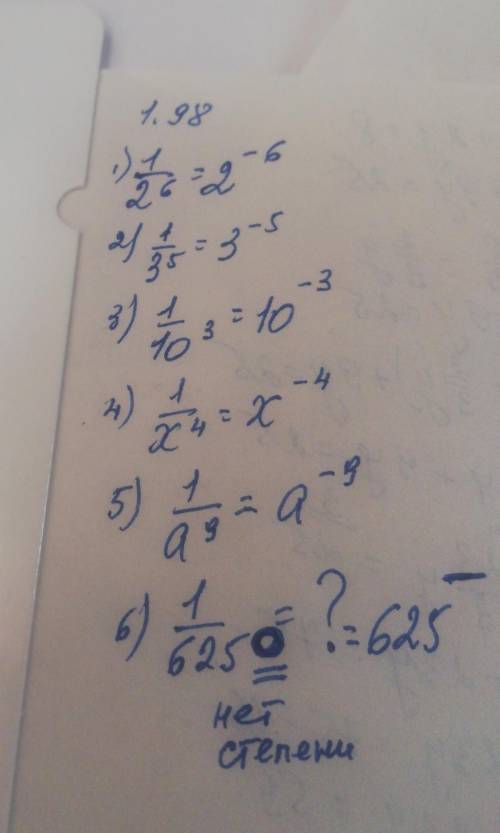 1.98
1) 1/2⁶ = 2⁻⁶
2) 1/3⁵ = 3⁻⁵
3) 1/10³ = 10⁻³
4) 1/x⁴ = x⁻⁴
5) 1/a⁹ = a⁻⁹
6) 1/625 = ? = 625⁻
нет
степени